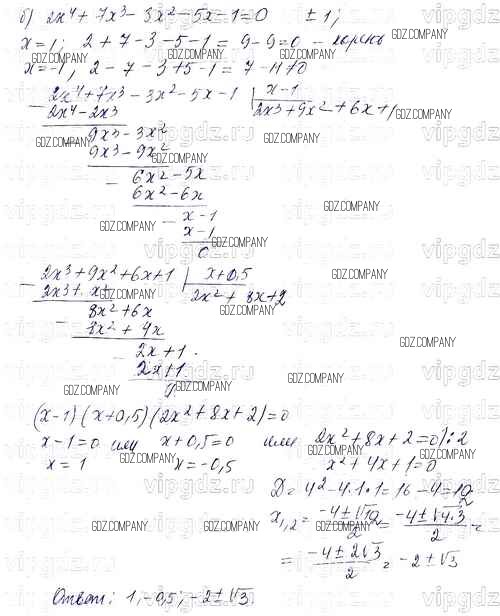 б) 2x⁴ + 7x³ - 3x² - 5x - 1 = 0 ± 1;
x = 1; 2 + 7 - 3 - 5 - 1 = 9 - 9 = 0 - корень
x = -1, 2 - 7 - 3 + 5 - 1 = 7 - 11 ≠ 0
- 2x⁴ + 7x³ - 3x² - 5x - 1 | x - 1
2x⁴ - 2x³ 2x³ + 9x² + 6x + 1
- 9x³ - 3x²
9x³ - 9x²
- 6x² - 5x
6x² - 6x
- x - 1
x - 1
0
- 2x³ + 9x² + 6x + 1 | x + 0,5
2x³ + x² 2x² + 8x + 2
- 8x² + 6x
8x² + 4x
- 2x + 1
2x + 1
0
(x - 1)(x + 0,5)(2x² + 8x + 2) = 0
x - 1 = 0 или x + 0,5 = 0 или 2x² + 8x + 2 = 0 |: 2
x = 1 x = -0,5 x² + 4x + 1 = 0
D = 4² - 4·1·1 = 16 - 4 = 12
x₁,₂ = (-4 ± √12)/2 = (-4 ± √4·3)/2 =
= (-4 ± 2√3)/2 = -2 ± √3
Ответ: 1, -0,5; -2 ± √3
vipgdz.ru
GDZ.COMPANY